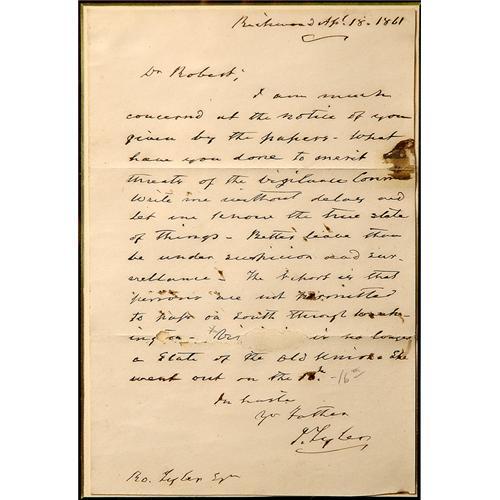 Richmond Apl. 18. 1861
Dr Robert;
I am much
concerned at the notice of you
given by the papers - What
have you done to merit
threats of the Vigilance Comm
Write me without delay and
let me know the true state
of things - Better leave than
be under suspicion and sur-
veillance. The report is that
persons are not permitted
to pass on South through Washing-
ing on - is no longer
a State of the Old Union. She
went out on the - 16th
In haste
Yr father
J. Tyler
Ro. Tyler Esqr